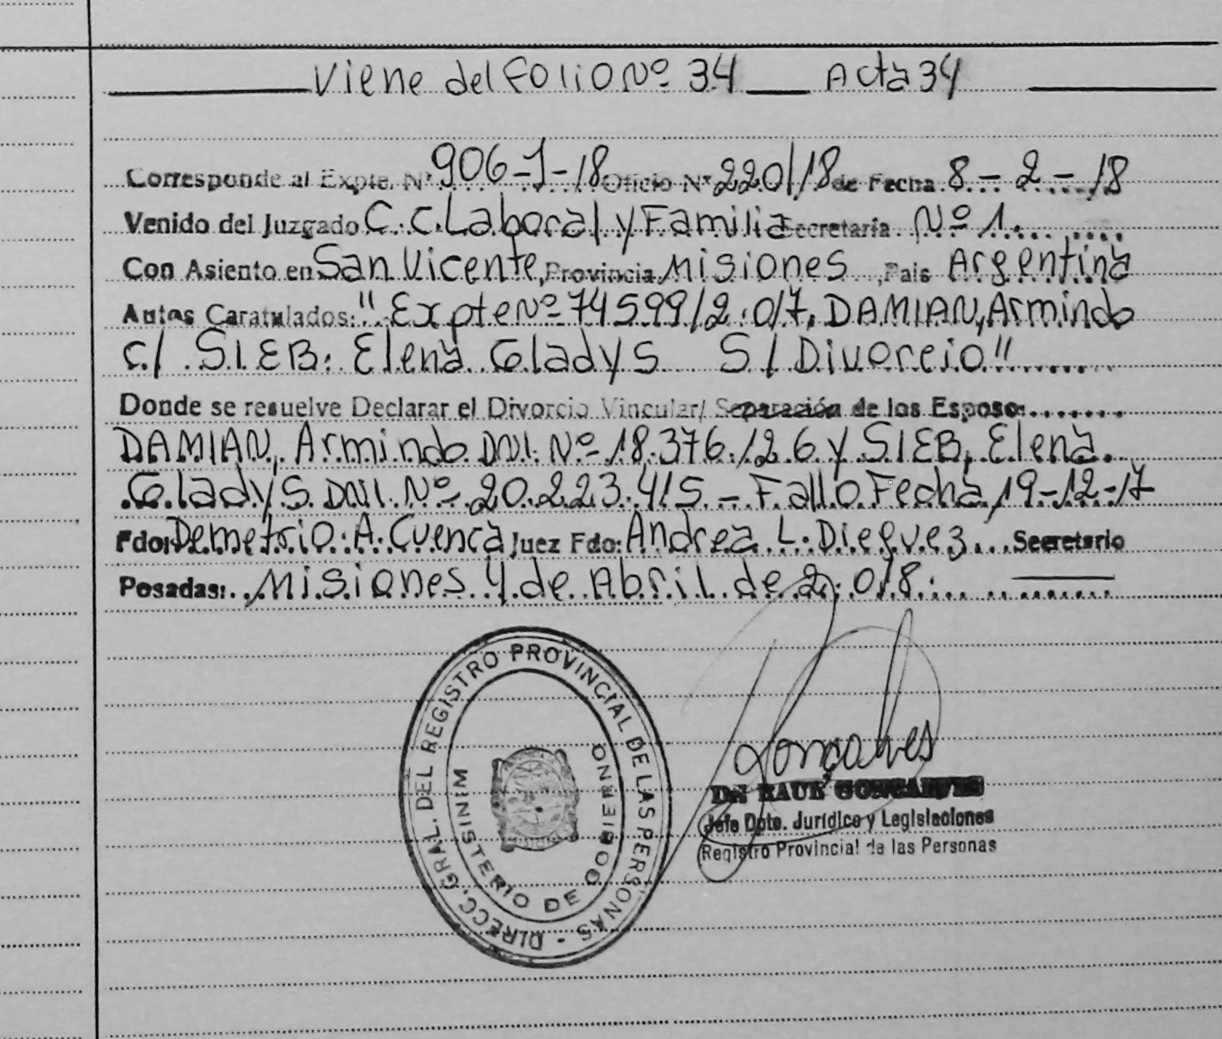 Viene del Folio Nº 34 ___ Acta 34
Corresponde al Expte. Nº 906-J-18 Oficio Nº 220/18 de Fecha 8-2-18
Venido del Juzgado C.C. Laboral y Familia Secretaría Nº 1
Con Asiento en San Vicente, Provincia Misiones, País Argentina
Autos Caratulados: "Expte Nº 74599/2.017, DAMIAN, Armindo
c/ SIEB: Elena Gladys S/Divorcio"
Donde se resuelve Declarar el Divorcio Vincular/ Separación de los Esposo:
DAMIAN, Armindo DNI. Nº 18.376.126 y SIEB, Elena
Gladys DNI. Nº 20.223.415 - Fallo Fecha 19-12-17
Fdo: Demetrio A. Cuenca Juez Fdo: Andrea L. Dieguez Secretario
Posadas: Misiones 4 de Abril de 2.018.
DIRECC. GRAL. DEL REGISTRO PROVINCIAL DE LAS PERSONAS -
MINISTERIO DE GOBIERNO
Gonçalves
Dr. RAUL GONCALVES
Jefe Dpto. Jurídico y Legislaciones
Registro Provincial de las Personas